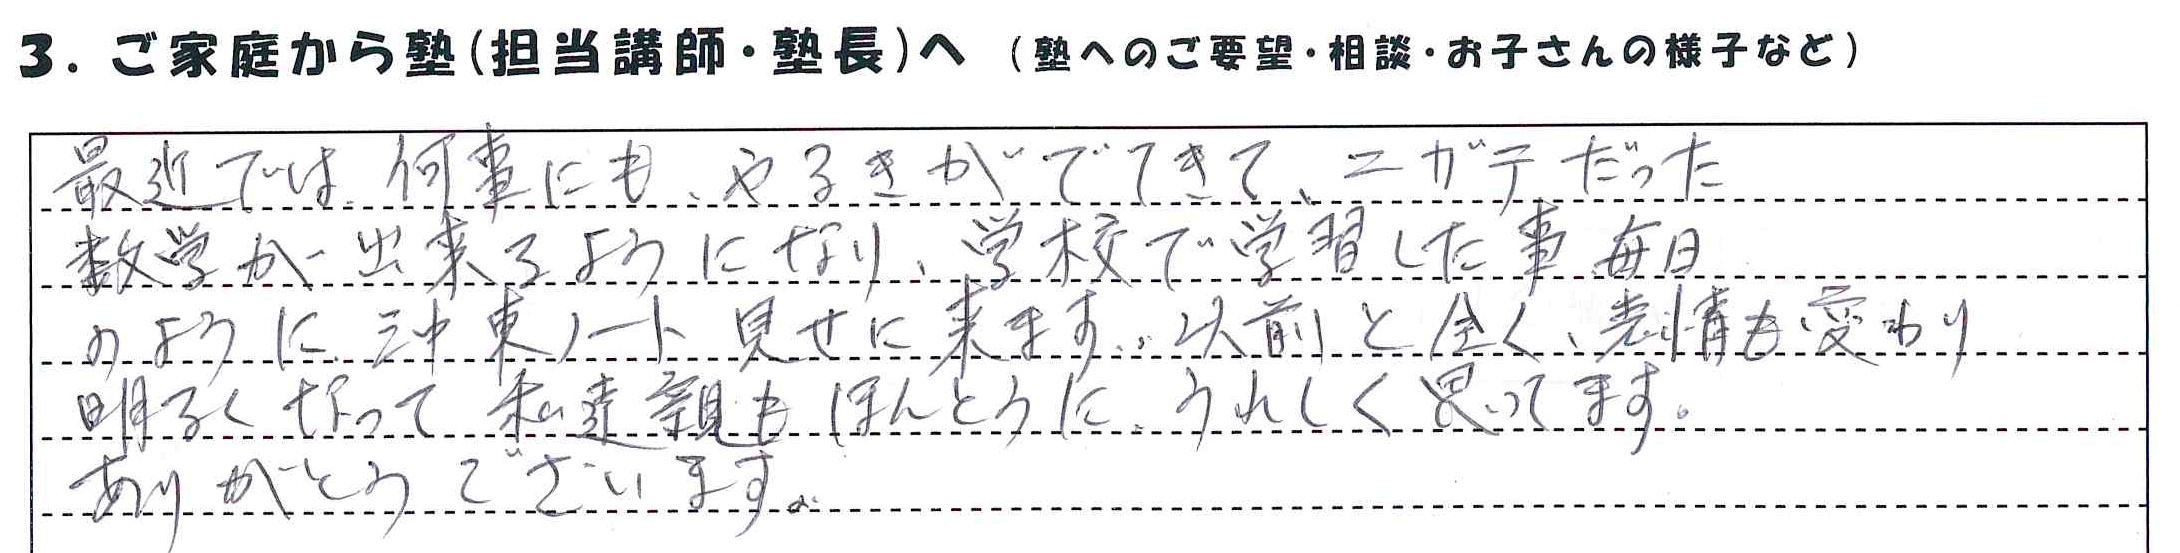 3. ご家庭から塾(担当講師・塾長)へ (塾へのご要望・相談・お子さんの様子など)
最近では、何事にも、やるきがでてきて、ニガテだった
数学が出来るようになり、学校で学習した事、毎日
のように、ノート見せに来ます。以前と全く、表情も変わり
明るくなって私達親もほんとうに、うれしく思ってます。
ありがとうございます。